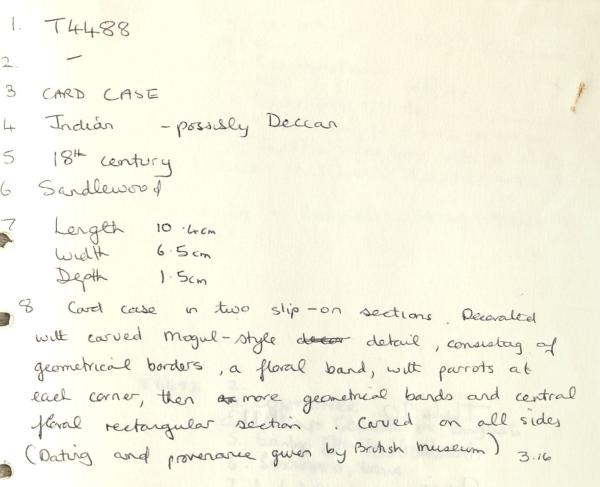 1. T4488
2. –
3 CARD CASE
4 Indian – possibly Deccan
5 18th century
6 Sandlewood
7 Length 10.4cm
Width 6.5cm
Depth 1.5cm
8 Card case in two slip-on sections. Decorated
with carved Mogul-style decor detail, consisting of
geometrical borders, a floral band, with parrots at
each corner, then more geometrical bands and central
floral rectangular section. Carved on all sides
(Dating and provenance given by British Museum) 3.16